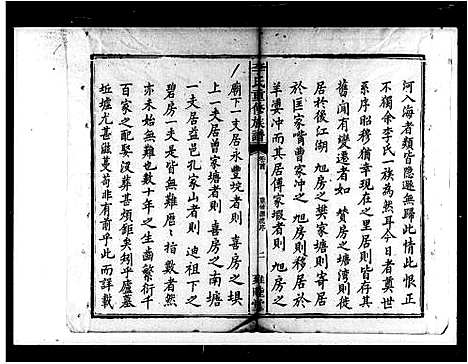 河入海者類皆隱遯無歸此情此恨正
不獨余李氏一族為然耳今日者奠世
系序昭穆猶幸現在之里居則皆存其
舊聞有變遷者如 賛房之塘灣則徙
居於後江湖 旭房之樊家塘則寄居
於匡家嘴曹家冲 旭房則移居於
羊婆冲而其居傅家塅者則 旭房之
李氏重修族譜 卷首 二 雍睦堂
廟下一支居永豐垸者則 喜房之垻
上一支居曽家塘者則 喜房之南塘
一支居益邑孔家山者則 迪祖下之
碧房一一皆是無難歷歷指數者然
亦未始無難也數十年之生齒繁衍千
百家之配娶沒葬甚煩鉅矣矧乎廬墓
坵墟尤甚滋蔓苟非有前乎此而詳載